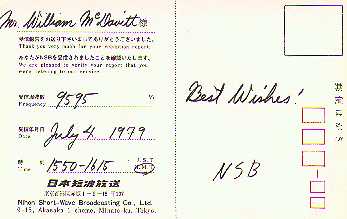 Mr. William McDavitt 様
受信報告をお送り下さいましてありがとうございました。
Thank you very much for your reception report.
あなたがNSBを受信されましたことを確認いたします。
We are pleased to verify your report that you
were listening to our service.
受信周波数
Frequency 9595
受信年月日
Date July 4 1979
時
Time 1550-1615 J.S.T
G.M.T
日本短波放送
Nihon Short-Wave Broadcasting Co., Ltd.
9-15, Akasaka 1 chome, Minato-ku, Tokyo.
Best Wishes!
NSB
郵便はがき